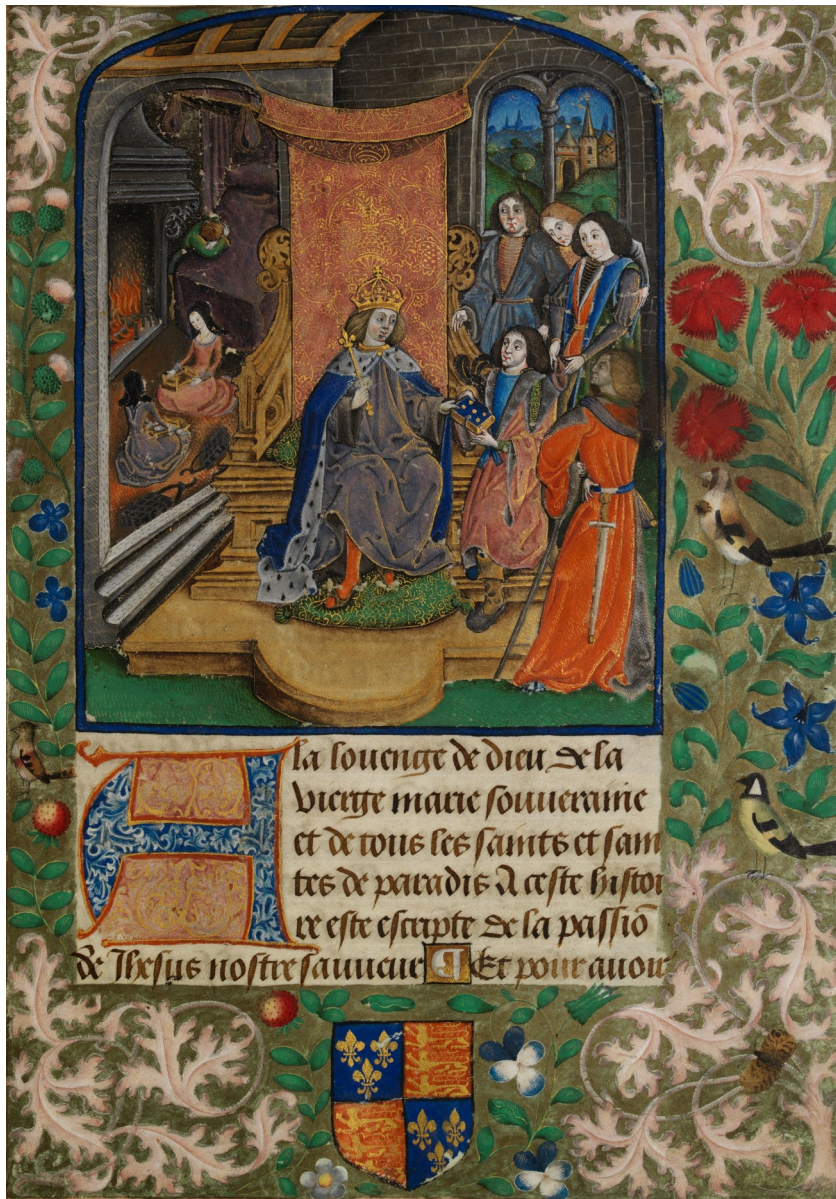 A la louenge de dieu De la
vierge marie souueraine
et de tous les saints et sain
tes de paradis A ceste histoi
re este escripte De la passiō
de Ihesus nostre sauueur ¶ Et pour auoir